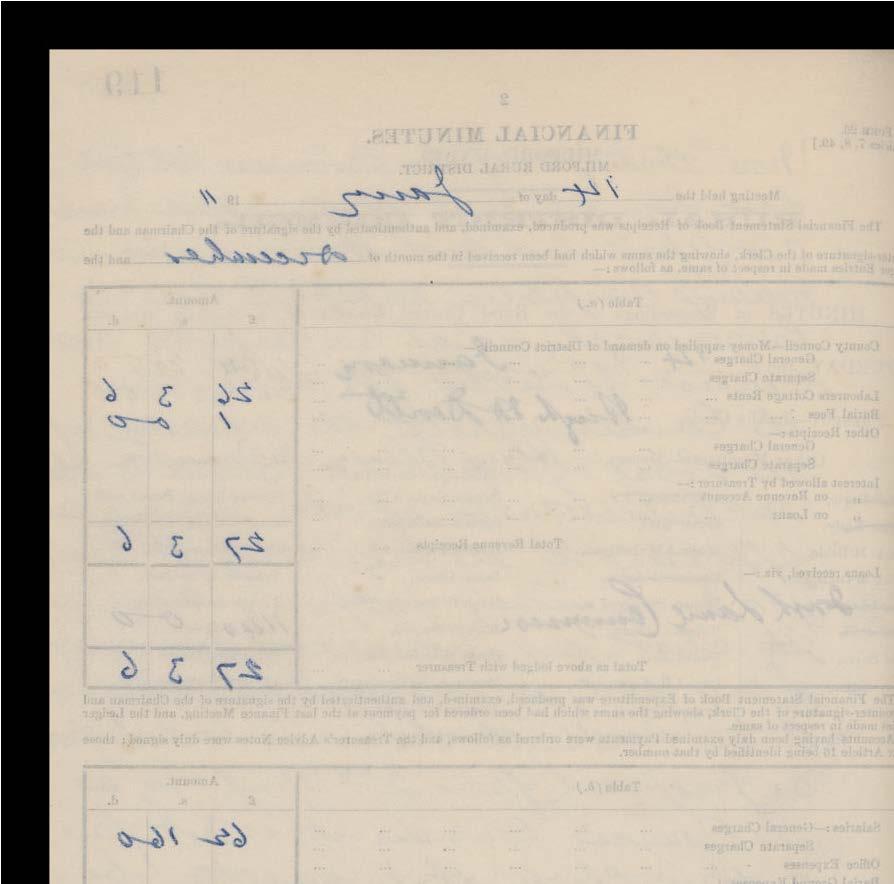 119
2
Form 26.
7, 8, 49.]
FINANCIAL MINUTES.
MILFORD RURAL DISTRICT.
Meeting held the 14 day of Jany 19 11
The Financial Statement Book of Receipts was produced, examined, and authenticated by the signature of the Chairman and the
signature of the Clerk, showing the sums which had been received in the month of December and the
Entries made in respect of same, as follows:—
Table (a.) Amount.
£ s. d.
County Council—Money supplied on demand of District Councils—
General Charges ... ... ...
Separate Charges ... ... ...
Labourers Cottage Rents ... ... ... 26 3 6
Burial Fees ... ... ... 1 0 0
Other Receipts:—
General Charges ... ... ...
Separate Charges ... ... ...
Interest allowed by Treasurer:—
„ on Revenue Account ... ... ...
„ on Loans ... ... ...
Total Revenue Receipts ... 27 3 6
Loans received, viz:—
0 0
Total as above lodged with Treasurer ... ... 27 3 6
The Financial Statement Book of Expenditure was produced, examined, and authenticated by the signature of the Chairman and
signature of the Clerk, showing the sums which had been ordered for payment at the last Finance Meeting, and the Ledger
made in respect of same.
Accounts having been duly examined Payments were ordered as follows, and the Treasurer's Advice Notes were duly signed; those
Article 16 being identified by that number.
Table (b.) Amount.
£ s. d.
Salaries:—General Charges ... ... ... 62 16 0
Separate Charges ... ... ...
Office Expenses ... ... ...
Burial Ground Expenses: